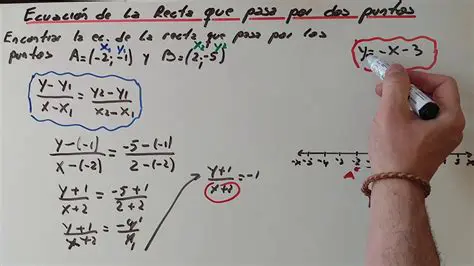 Ecuación de la Recta que pasa por dos puntos
Encontrar la ec. de la recta que pasa por los
x₁ y₁ x₂ y₂
puntos A=(-2;-1) y B=(2;-5)
y=-x-3
(y-y₁)/(x-x₁) = (y₂-y₁)/(x₂-x₁)
(y-(-1))/(x-(-2)) = (-5-(-1))/(2-(-2))
(y+1)/(x+2) = (-5+1)/(2+2)
(y+1)/(x+2) = -4/4 1
(y+1)/(x+2) = -1
-x -5 -4 -3 -2
A